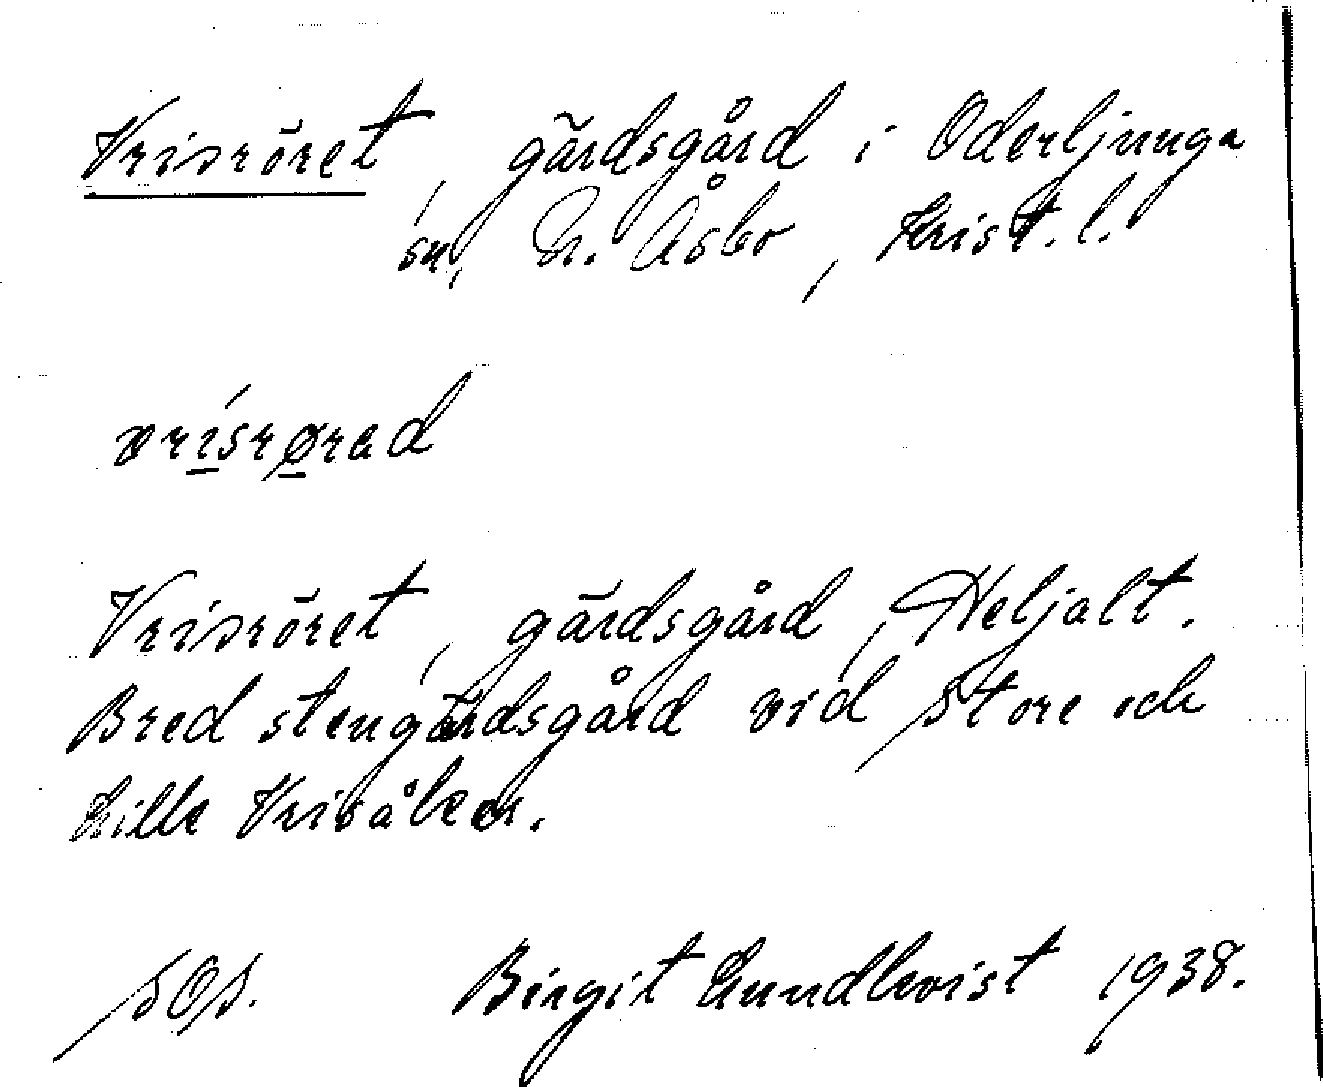 Vrisröret, gärdsgård i Oderljunga
sn, N. Åsbo, Krist. l.
vrisrøred
Vrisröret, gärdsgård, Heljalt.
Bred stengärdsgård vid Store och
Lille Vrisåker.
SOS. Birgit Lundkvist 1938.